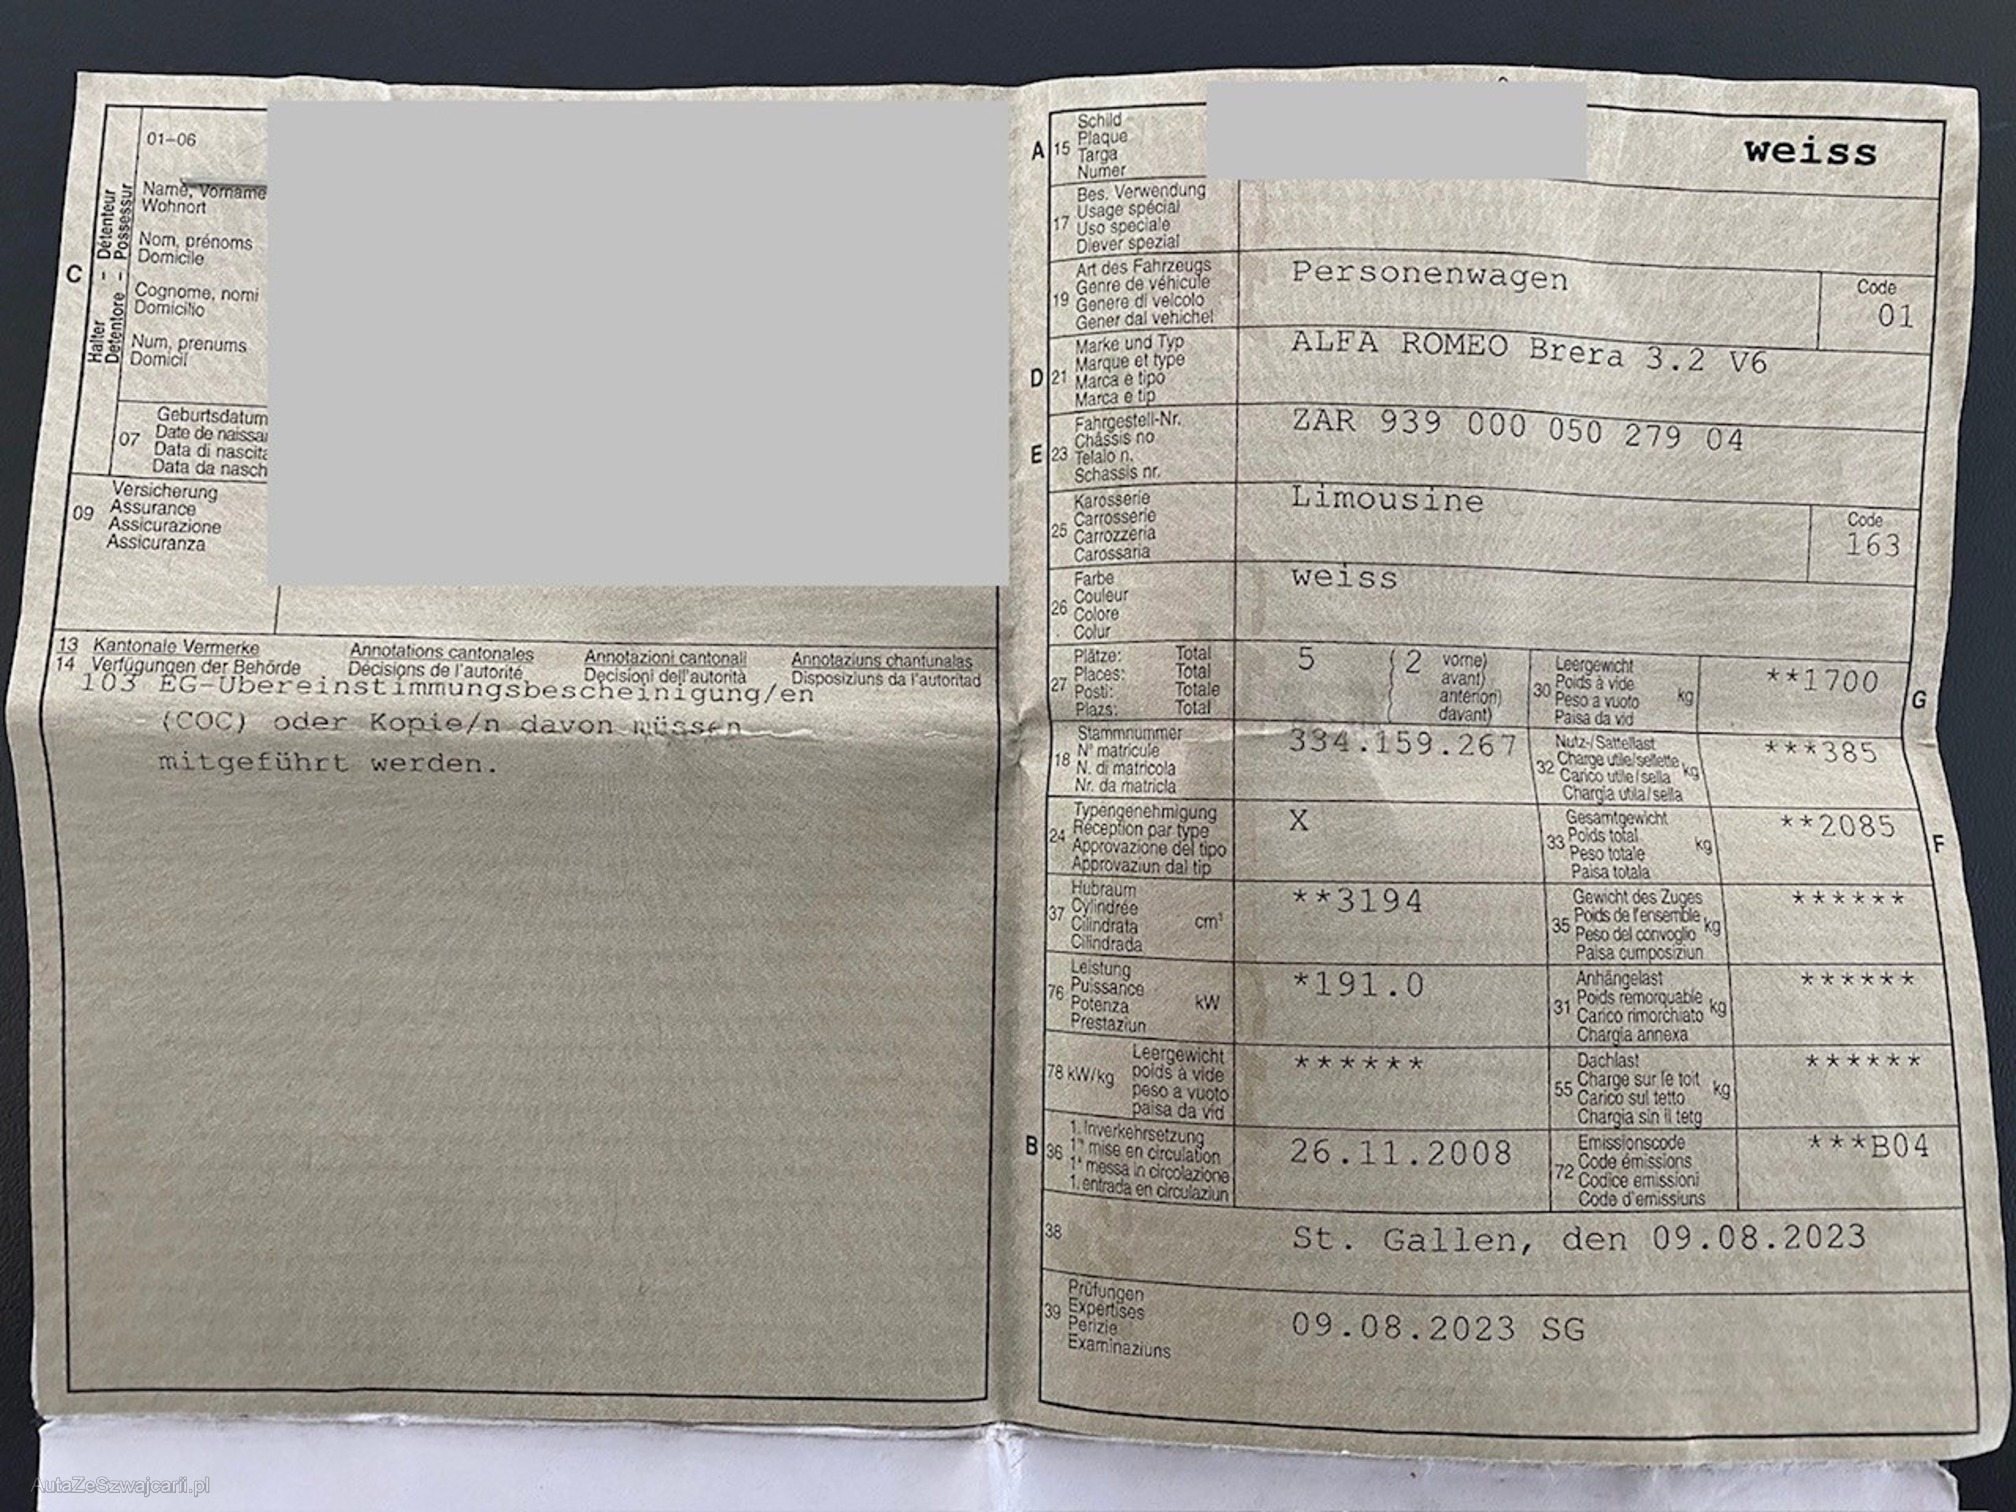 01–06
Halter – Détenteur
Detentore – Possessur
C
Name, Vorname
Wohnort
Nom, prénoms
Domicile
Cognome, nomi
Domicilio
Num, prenums
Domicil
07
Geburtsdatum
Date de naissa
Data di nascita
Data da nasch
09
Versicherung
Assurance
Assicurazione
Assicuranza
13 Kantonale Vermerke Annotations cantonales Annotazioni cantonali Annotaziuns chantunalas
14 Verfügungen der Behörde Décisions de l'autorité Decisioni dell'autorità Disposiziuns da l'autoritad
103 EG-Übereinstimmungsbescheinigung/en
(COC) oder Kopie/n davon müssen
mitgeführt werden.
A 15
Schild
Plaque
Targa
Numer
weiss
17
Bes. Verwendung
Usage spécial
Uso speciale
Diever spezial
19
Art des Fahrzeugs
Genre de véhicule
Genere di veicolo
Gener dal vehichel
Personenwagen
Code
01
D 21
Marke und Typ
Marque et type
Marca e tipo
Marca e tip
ALFA ROMEO Brera 3.2 V6
E 23
Fahrgestell-Nr.
Châssis no
Telaio n.
Schassis nr.
ZAR 939 000 050 279 04
25
Karosserie
Carrosserie
Carrozzeria
Carossaria
Limousine
Code
163
26
Farbe
Couleur
Colore
Colur
weiss
27
Plätze: Total
Places: Total
Posti: Totale
Plazs: Total
5 ( 2 vorne)
avant)
anteriori)
davant)
30
Leergewicht
Poids à vide
Peso a vuoto
Paisa da vid
kg
**1700
G
18
Stammnummer
N° matricule
N. di matricola
Nr. da matricla
334.159.267
32
Nutz-/Sattellast
Charge utile/sellette
Carico utile/sella
Chargia utila/sella
kg
***385
24
Typengenehmigung
Réception par type
Approvazione del tipo
Approvaziun dal tip
X
33
Gesamtgewicht
Poids total
Peso totale
Paisa totala
kg
**2085
F
37
Hubraum
Cylindrée
Cilindrata
Cilindrada
cm³
**3194
35
Gewicht des Zuges
Poids de l'ensemble
Peso del convoglio
Paisa cumposiziun
kg
******
76
Leistung
Puissance
Potenza
Prestaziun
kW
*191.0
31
Anhängelast
Poids remorquable
Carico rimorchiato
Chargia annexa
kg
******
78 kW/kg
Leergewicht
poids à vide
peso a vuoto
paisa da vid
******
55
Dachlast
Charge sur le toit
Carico sul tetto
Chargia sin il tetg
kg
******
B 36
1. Inverkehrsetzung
1re mise en circulation
1a messa in circolazione
1. entrada en circulaziun
26.11.2008
72
Emissionscode
Code émissions
Codice emissioni
Code d'emissiuns
***B04
38
St. Gallen, den 09.08.2023
39
Prüfungen
Expertises
Perizie
Examinaziuns
09.08.2023 SG
AutaZeSzwajcarii.pl